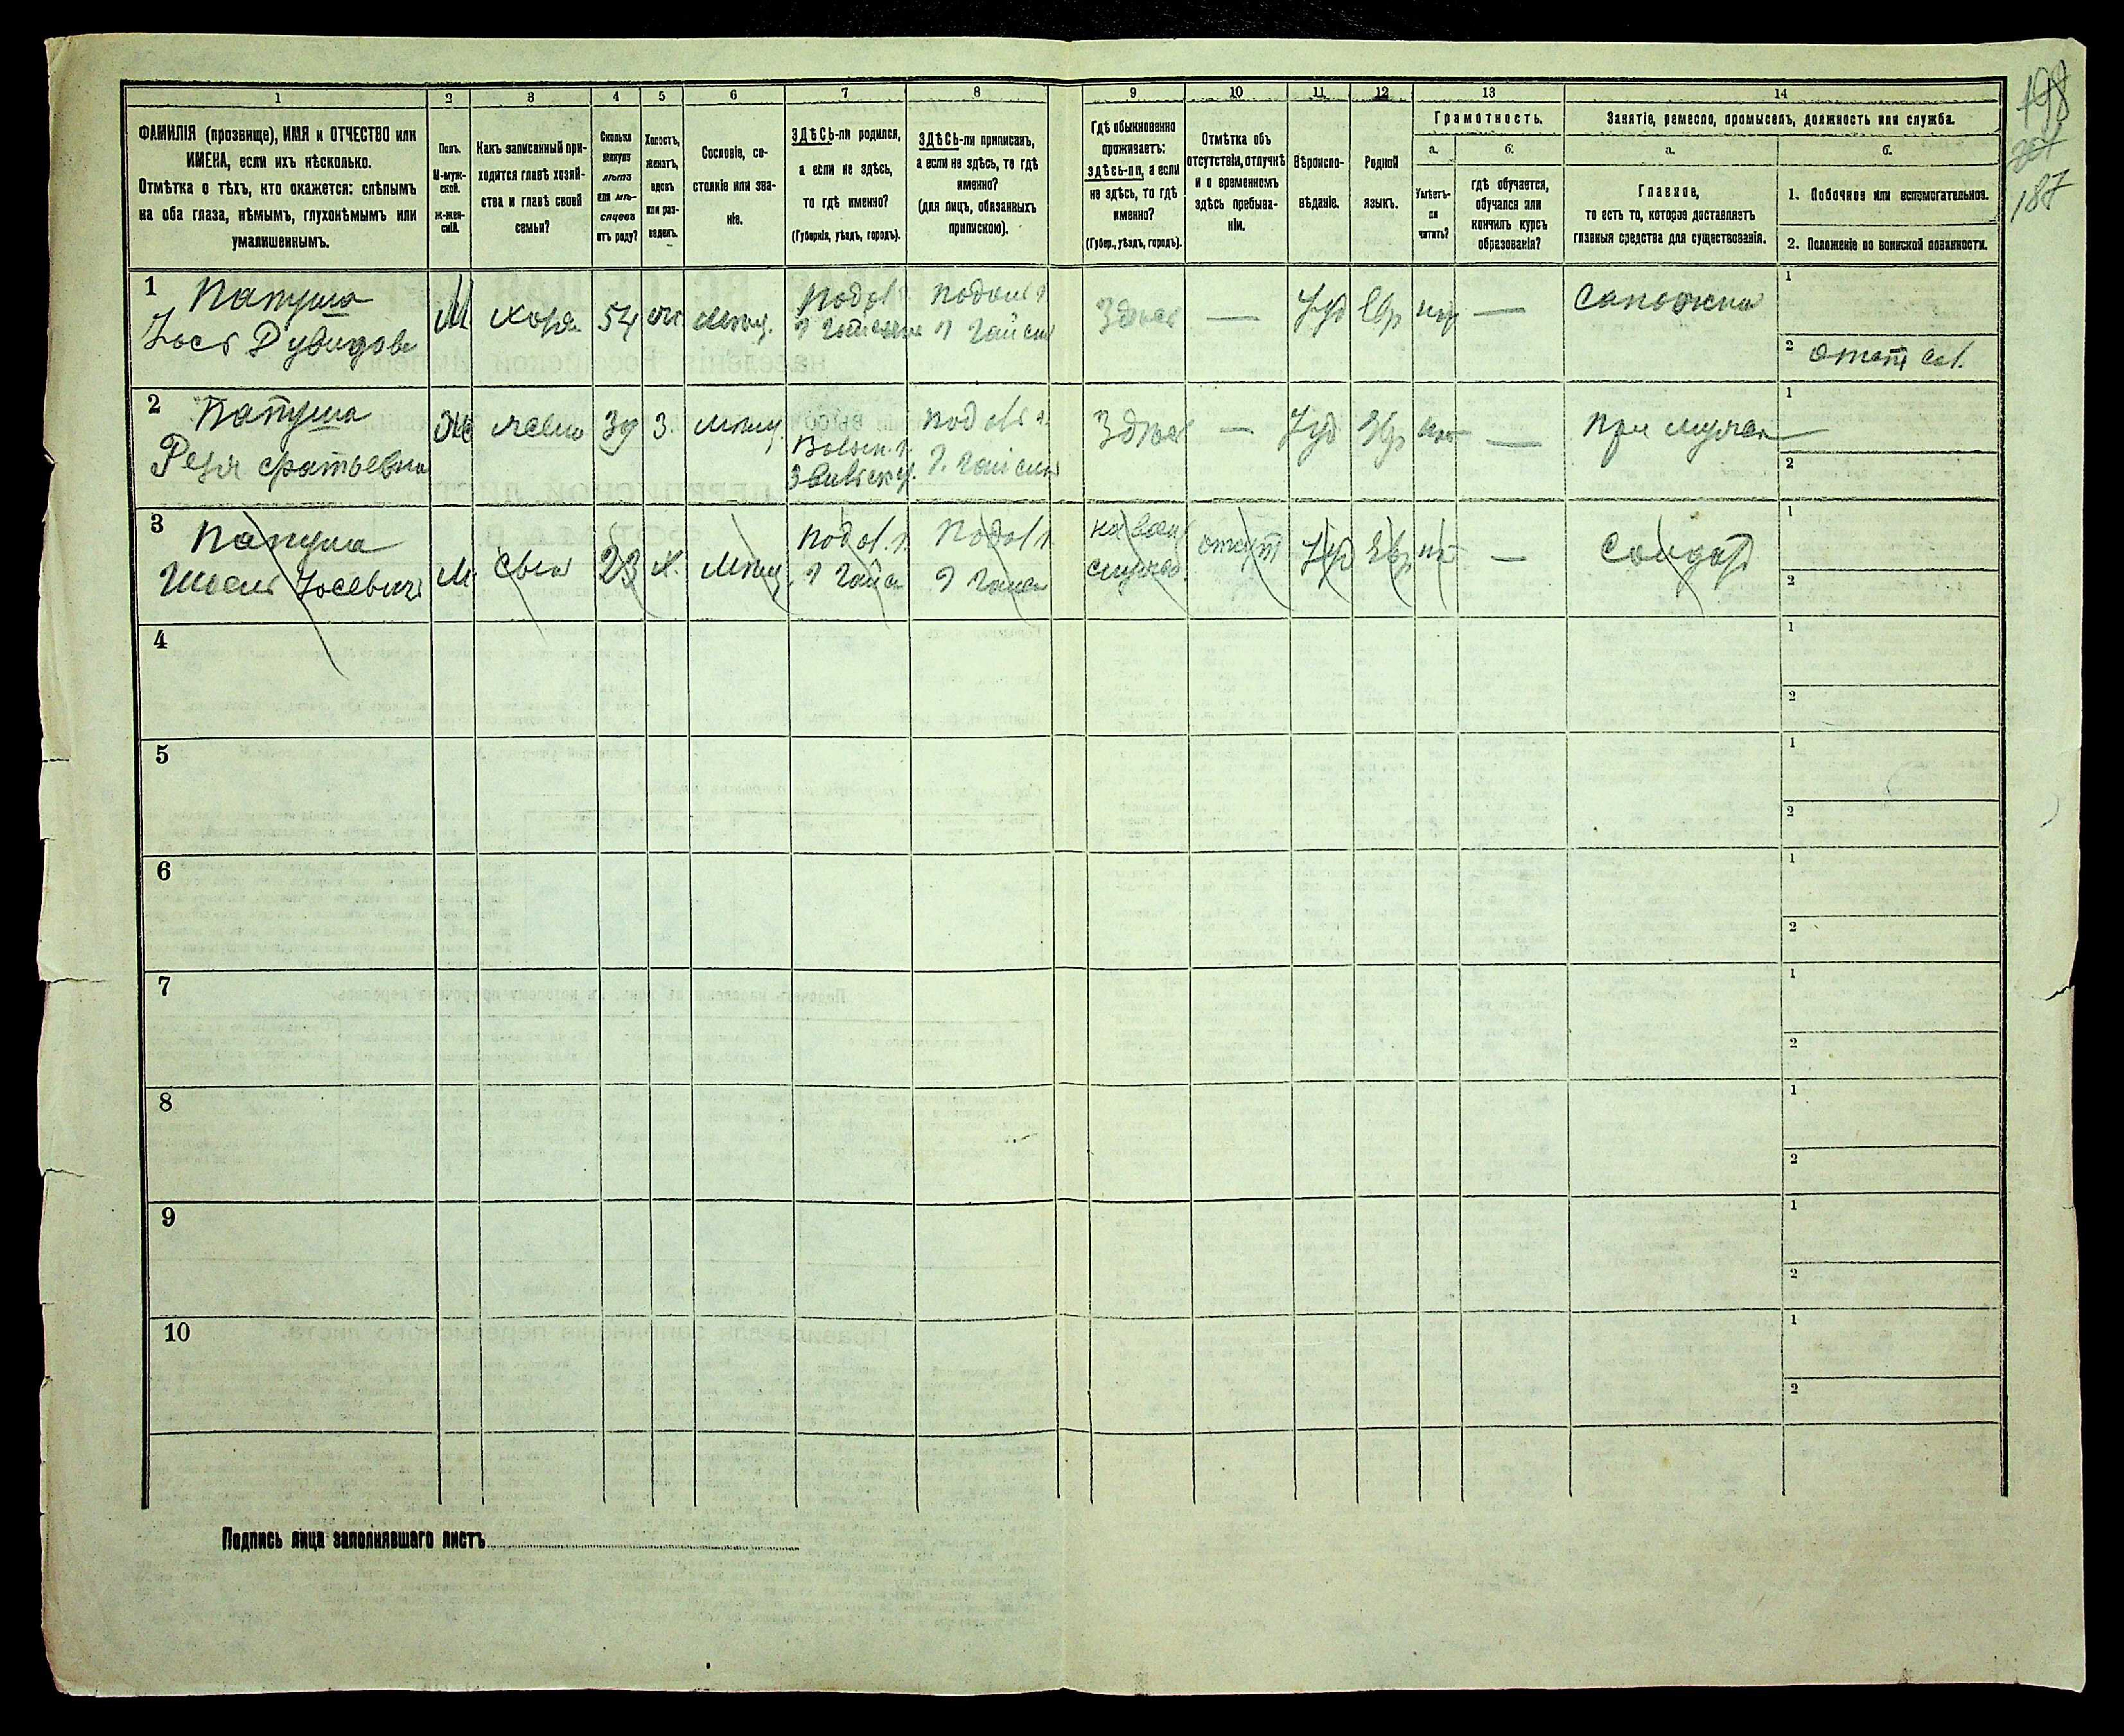 198
187
1
2
3
4
5
6
7
8
9
10
11
12
13
14
ФАМИЛІЯ (прозвище), ИМЯ и ОТЧЕСТВО или
ИМЕНА, если ихъ нѣсколько.
Отмѣтка о тѣхъ, кто окажется: слѣпымъ
на оба глаза, нѣмымъ, глухонѣмымъ или
умалишеннымъ.
Полъ.
М-муж-
ской.
Ж-жен-
скій.
Какъ записанный при-
ходится главѣ хозяй-
ства и главѣ своей
семьи?
Сколько
минуло
лѣтъ
или мѣ-
сяцевъ
отъ роду?
Холостъ,
женатъ,
вдовъ
или раз-
веденъ.
Сословіе, со-
стояніе или зва-
ніе.
ЗДѢСЬ-ли родился,
а если не здѣсь,
то гдѣ именно?
(Губернія, уѣздъ, городъ).
ЗДѢСЬ-ли приписанъ,
а если не здѣсь, то гдѣ
именно?
(для лицъ, обязанныхъ
припискою).
Гдѣ обыкновенно
проживаетъ:
здѣсь-ли, а если
не здѣсь, то гдѣ
именно?
(Губер., уѣздъ, городъ).
Отмѣтка объ
отсутствіи, отлучкѣ
и о временномъ
здѣсь пребыва-
ніи.
Вѣроиспо-
вѣданіе.
Родной
языкъ.
Грамотность.
а.
Умѣетъ-
ли
читать?
б.
гдѣ обучается,
обучался или
кончилъ курсъ
образованія?
Занятіе, ремесло, промыселъ, должность или служба.
а.
Главное,
то есть то, которое доставляетъ
главныя средства для существованія.
б.
1. Побочное или вспомогательное.
2. Положеніе по воинской повинности.
1
Папуша
Іось Дувидовъ
М
хозя
54
мѣщ.
Подол г
г Гайсинъ
Подол г
г Гайсин
Здѣсь
—
Іуд
Евр
—
Сапожни
1
2
2
Папуша
Рейзя
Ж
жена
39
З.
мѣщ.
Волын. г.
Подол г
г. Гайсин
Здѣсь
—
Іуд
Евр
—
При мужѣ
1
2
3
Папуша
Іосевичъ
М.
Сын
23
Х.
Мѣщ
Подол. г.
г Гайс
Подол г
г Гайсин
на воен
служб.
Іуд
Евр
—
Солдатъ
1
2
4
1
2
5
1
2
6
1
2
7
1
2
8
1
2
9
1
2
10
1
2
Подпись лица заполнявшаго листъ